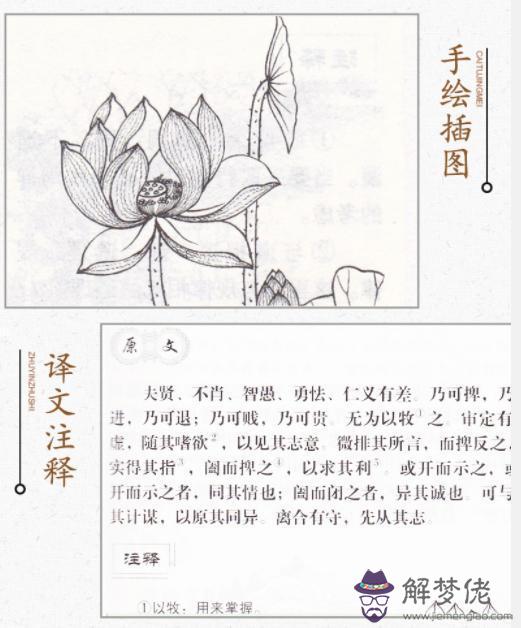 手绘插图
CAITUJINGMEI
译文注释
ZHUYINZHUSHI
原 文
夫贤、不肖、智愚、勇怯、仁义有差。乃可捭，乃
进，乃可退；乃可贱，乃可贵。无为以牧①之。审定有
虚，随其嗜欲②，以见其志意。微排其所言，而捭反之，
实得其指③，阖而捭之④，以求其利⑤。或开而示之，或
开而示之者，同其情也；阖而闭之者，异其诚也。可与
其计谋，以原其同异。离合有守，先从其志。
注释
①以牧：用来掌握。
解梦佬
www.jiemenglao.com